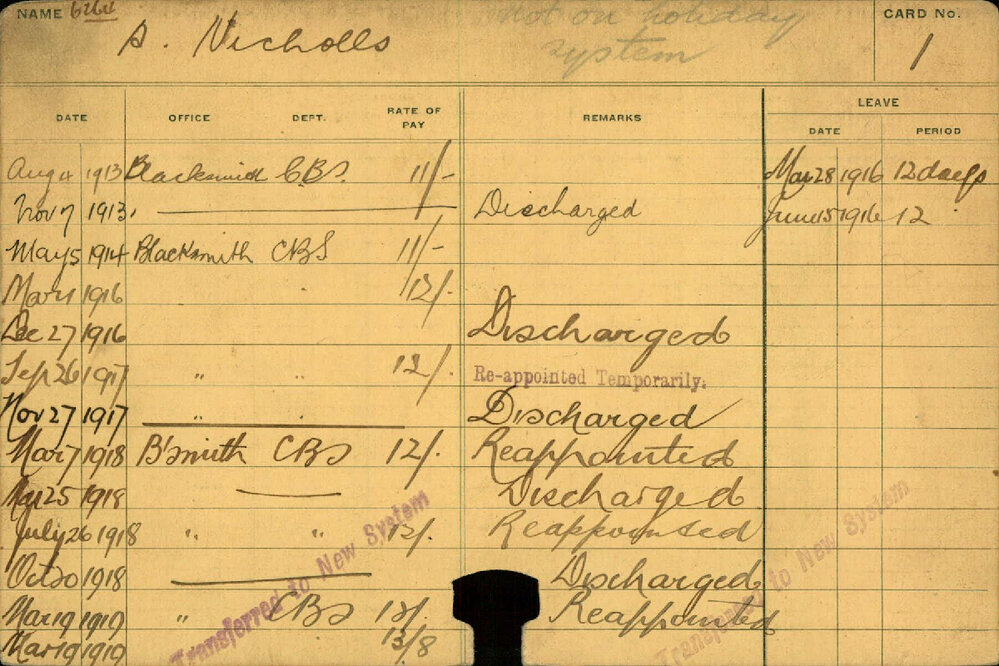 NAME 6264 A. Nicholls not on holiday CARD No.
system 1
LEAVE
DATE OFFICE DEPT. RATE OF PAY REMARKS DATE PERIOD
Aug 4 1913 Blacksmith C.B.S. 11/- Mar 28 1916 12 days
Nov 7 1913. Discharged June 15 1916 12
May 5 1914 Blacksmith CBS 11/-
Mar 1 1916 12/.
Dec 27 1916 Discharged
Sep 26 1917 " " 12/. Re-appointed Temporarily.
Nov 27 1917 " Discharged
Mar 7 1918 B'smith CBS 12/. Reappointed
25 1918 Discharged
July 26 1918 " " 12/. Reappointed
Oct 20 1918 Discharged
Mar 19 1919 " CBS Reappointed
Mar 19 1919 13/8
Transferred to New System
Transferred to New System